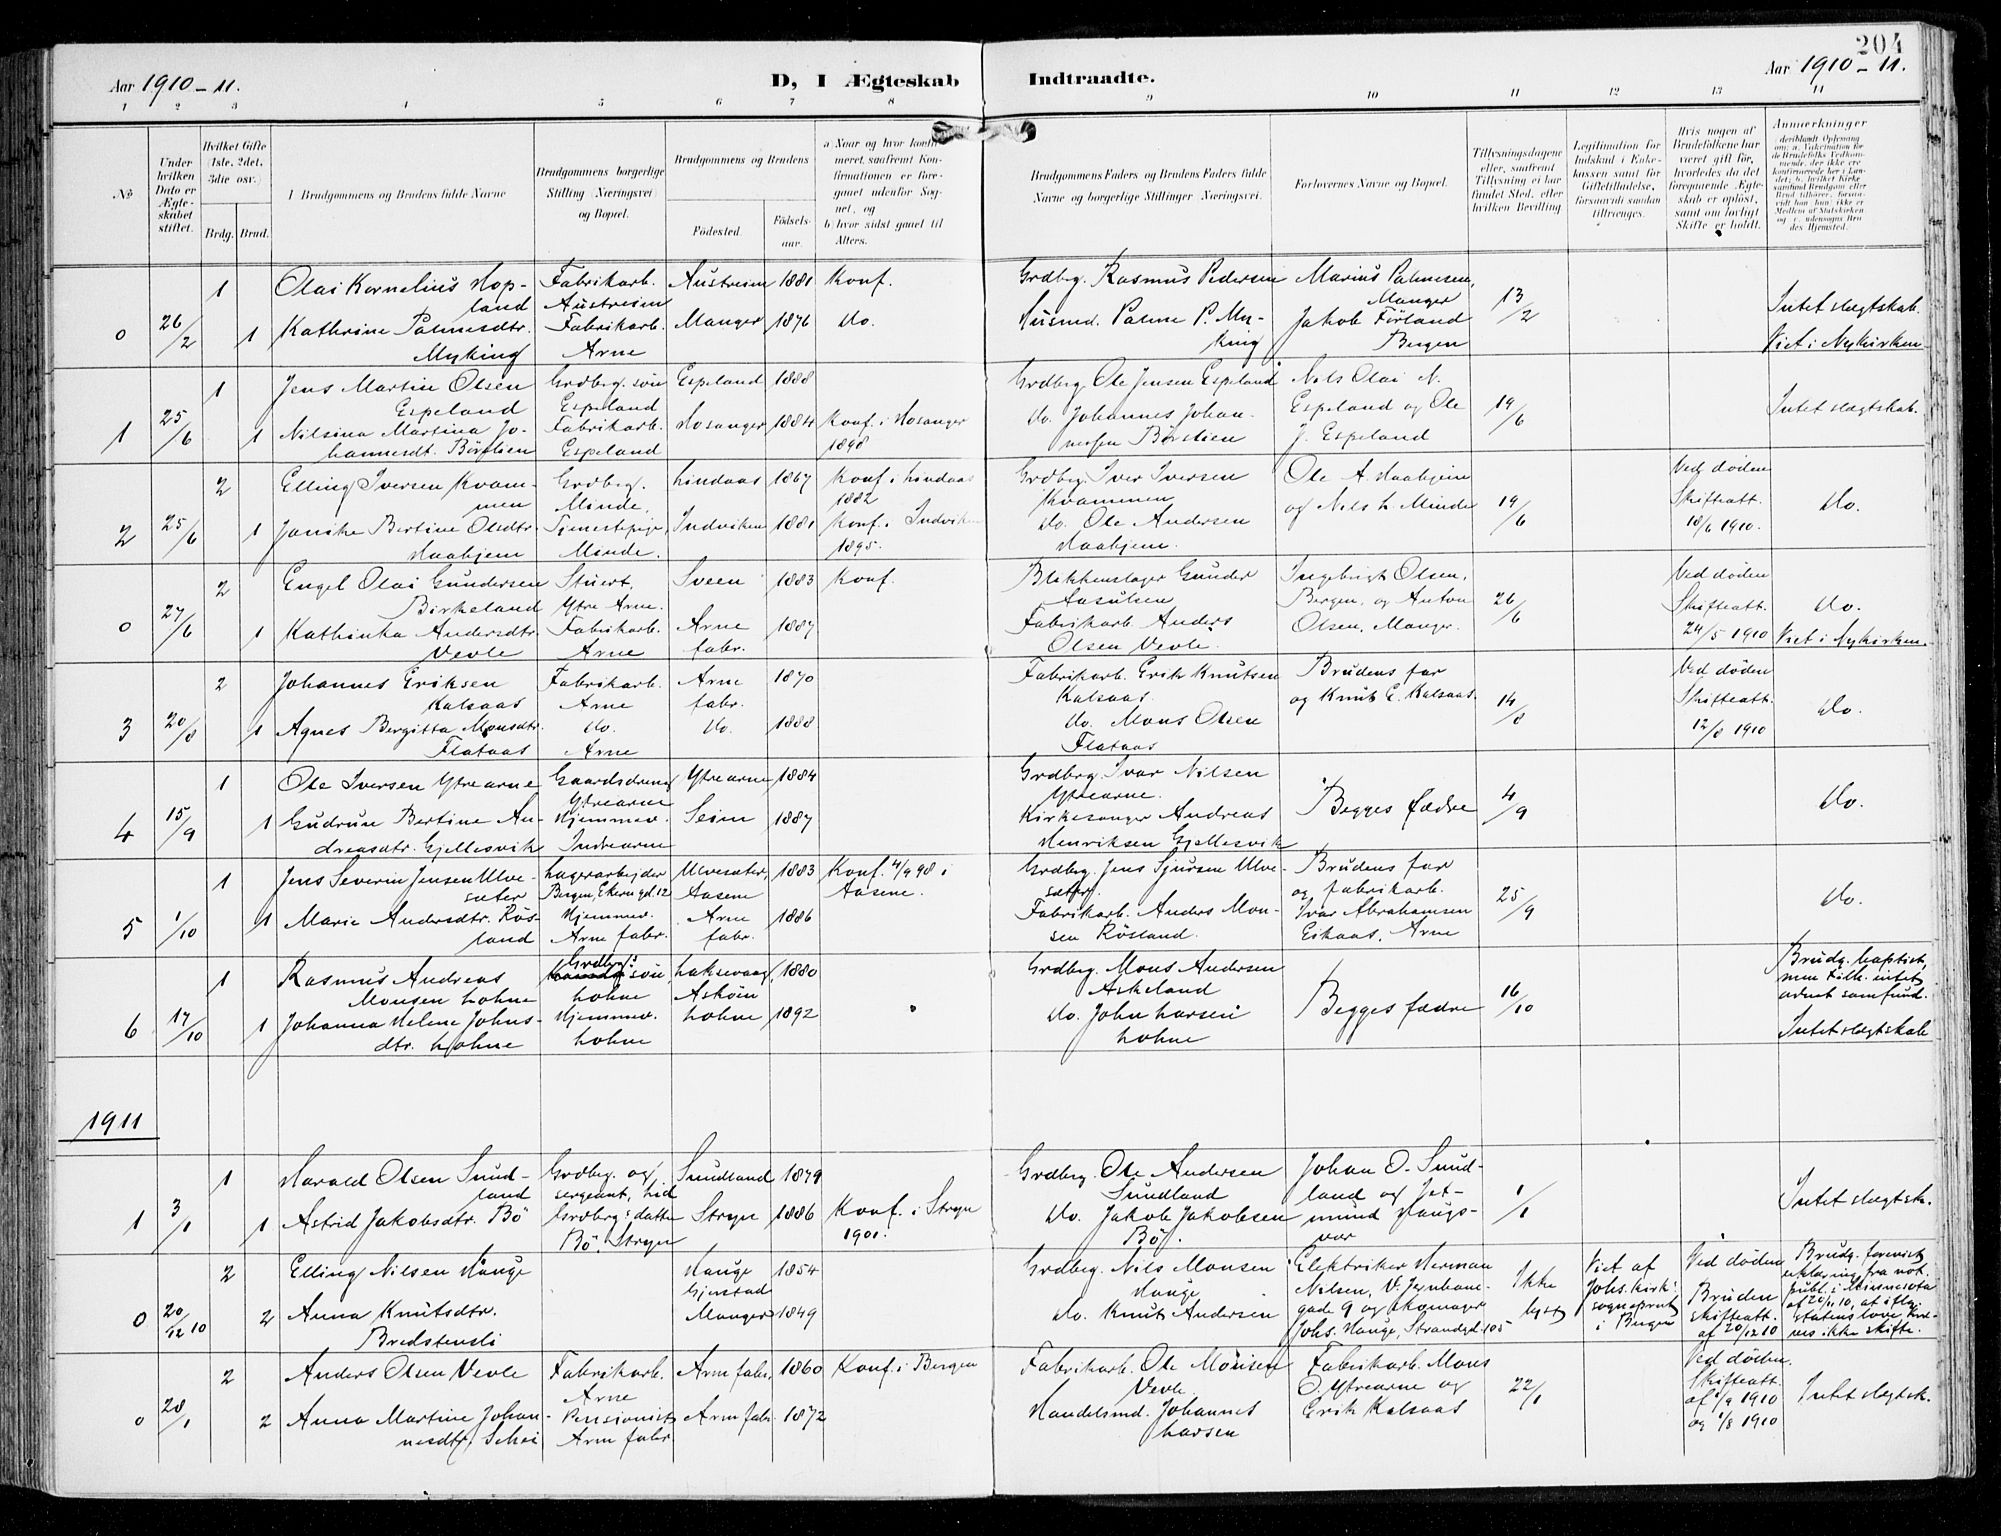 204
Aar 1910-11.
D, I Ægteskab Indtraadte.
Aar 1910-11.
1 2 3 4 5 6 7 8 9 10 11 12 13 14
No
Under hvilken Dato er Ægteskabet stiftet.
Hvilket Gifte (1ste, 2det, 3die osv.)
Brdg. Brud.
Brudgommens og Brudens fulde Navne
Brudgommens borgerlige Stilling (Næringsvei) og Bopæl.
Brudgommens og Brudens
Fødested. Fødselsaar.
a Naar og hvor konfirmeret, saafremt Konfirmationen er foregaaet udenfor Sognet, og
b hvor sidst gaaet til Alters.
Brudgommens Faders og Brudens Faders fulde Navne og borgerlige Stillinger (Næringsvei).
Forlovernes Navne og Bopæl.
Tillysningsdagene eller, saafremt Tillysning ei har fundet Sted, efter hvilken Bevilling.
Legitimation for Indskud i Enkekassen samt for Giftetilladelse, forsaavidt saadan tiltrænges.
Hvis nogen af Brudefolkene har været gift før, hvorledes da det foregaaende Ægteskab er opløst, samt om lovligt Skifte er holdt.
Anmerkninger
0 26/2 1 Olai Kornelius Hopland Fabrikarb. Austreim Austreim 1881 Konf. Grdbrg. Rasmus Pedersen Marius Palmesen, Manger 13/2 Intet slægtskab.
1 Kathrine Palmesdtr. Myking Fabrikarb. Arne Manger 1876 do. Husmd. Palme P. Myking Jakob Førland Bergen Viet i Nykirken
1 25/6 1 Jens Martin Olsen Espeland Grdbrg. søn Espeland Espeland 1888 Grdbrg. Ole Jensen Espeland Nils Olai N. Espeland og Ole J. Espeland 19/6 Intet slægtskab.
1 Nilsina Martina Johannesdt. Børstien Fabrikarb. Espeland Hosanger 1884 Konf. i Hosanger 1898 do. Johannes Johannessen Børstien
2 25/6 2 Elling Iversen Kvammen Grdbrg. Minde, Lindaas 1867 Konf. i Lindaas 1882 Grdbrg. Iver Iversen Kvammen Ole A. Maabjem og Nils L. Minde 19/6 Ved døden Skifteatt. 18/6 1910. do.
1 Janike Bertine Olsdtr. Maabjem Tjenestepige, Minde. Indviken 1881 Konf. i Indviken 1895. do. Ole Andersen Maabjem.
0 27/6 2 Engel Olai Gundersen Birkeland Stuert, Ytre Arne. Sveen 1883 Konf. Blikkenslager Gunder Aasulsen Ingebrigt Olsen, Bergen, og Anton Olsen, Manger. 26/6 Ved døden Skifteatt. 24/5 1910 do.
1 Kathinka Andersdtr. Vevle Fabrikarb. Arne Arne fabr. 1887 Fabrikarb. Anders Olsen Vevle. Viet i Nykirken.
3 20/8 2 Johannes Eriksen Kalsaas Fabrikarb. Arne Arne fabr. 1870 Fabrikarb. Erik Knutsen Kalsaas. Brudens far og Knut E. Kalsaas. 14/8 Ved døden Skifteatt. 12/8 1910 do.
1 Agnes Bergitta Monsdtr. Flataas do. Arne do. 1888 do. Mons Olsen Flataas
4 15/9 1 Ole Iversen Ytrearne Gaardsdreng Ytrearne Ytrearne 1884 Grdbrg. Ivar Nilsen Ytrearne. Begges fædre 4/9 do.
1 Gudrun Bertine Andreasdtr. Gjellesvik Hjemmev. Indrearne Seim 1887 Kirkesanger Andreas Henriksen Gjellesvik
5 1/10 1 Jens Severin Jensen Ulvesæter Lagerarbejder Bergen, Ekerngd. 12 Ulvesæter, Aasene 1883 Konf. 4/9 98 i Aasene. Grdbrg. Jens Sjursen Ulvesæter. Brudens far og fabrikarb. Ivar Abrahamsen Eikaas, Arne 25/9 do.
1 Marie Andersdtr. Røsland Hjemmev. Arne fabr. Arne fabr. 1886 Fabrikarb. Anders Monsen Røsland.
6 17/10 1 Rasmus Andreas Monsen Lohne Grdbrg. søn, Lohne Laksevaag, Askøin 1880 Grdbrg. Mons Andersen Askeland Begges fædre 16/10 Brudg. baptist, men tilh. intet ordnet samfund.
1 Johanna Helene Johnsdtr. Lohne Hjemmev. Lohne Lohne 1892 do. John Larsen Lohne Intet slægtskab
1911
1 3/1 1 Harald Olsen Sundland Grdbrg. og sergeant, Lid Sundland 1879 Grdbrg. Ole Andersen Sundland Johan O. Sundland og Jetmund Haugsvær 1/1 Intet slægtsk.
1 Astrid Jakobsdtr. Bø Grdbrg.s datter Bø, Stryn Stryn 1886 Konf. i Stryn 1901. do. Jakob Jakobsen Bø.
0 20/12 10 2 Elling Nilsen Hauge Hauge Gjerstad 1854 Grdbrg. Nils Monsen Hauge Elektriker Herman Nilsen, V. Jernbanegade 9 og skomager Johs. Hauge, Strandgd. 105 Ikke lyst Viet af Johs.kirk. sogneprest i Bergen Ved døden Bruden skifteatt. af 20/12 10 Brudg. forevist erklæring fra not. publ. i Minnesota af 26/11 10, at iflg. statens love kræves ikke skifte.
2 Anna Knutsdtr. Bredstensli Manger 1849 do. Knut Andersen
0 28/1 2 Anders Olsen Vevle Fabrikarb. Arne Arne fabr. 1860 Konf. i Bergen Fabrikarb. Ole Monsen Vevle. Fabrikarb. Mons O. Ytrearne og Erik Kalsaas 22/1 Ved døden. Skifteatt. af 1/9 1910 og 1/8 1910 Intet slægtsk.
2 Anna Martine Johannesdtr. Schei Pensionist Arne fabr. Arne fabr. 1872 Handelsmd. Johannes Larsen